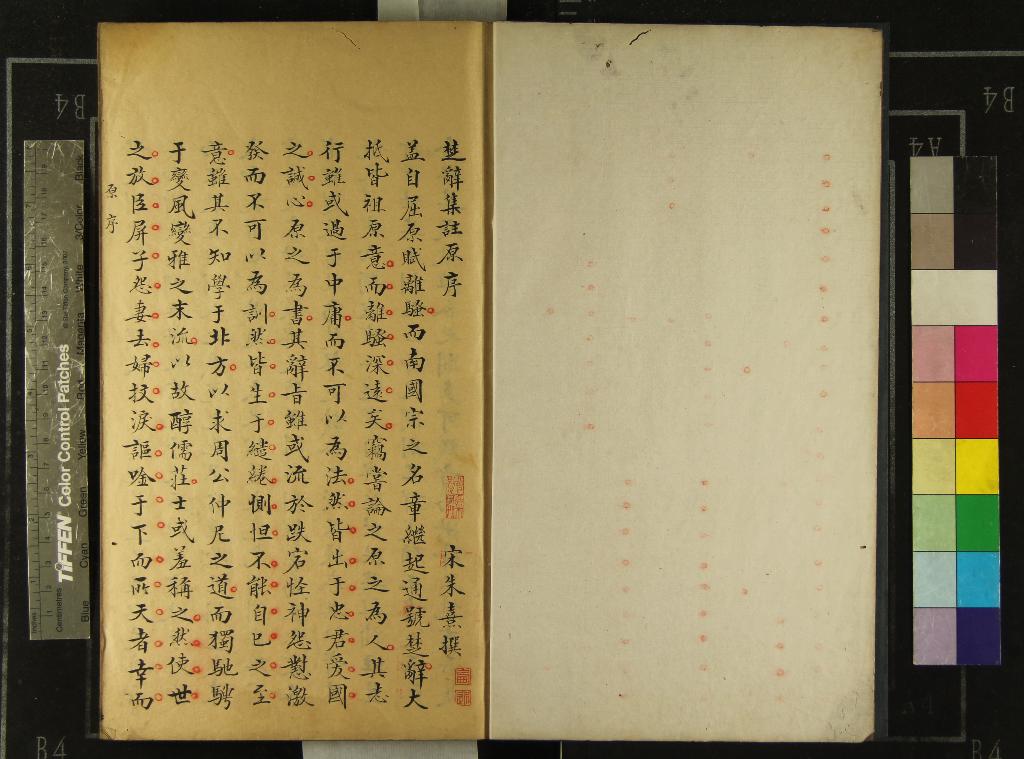 楚辭集註原序
宋朱熹撰
盖自屈原賦離騷而南國宗之名章繼起通號楚辭大
抵皆祖原意而離騷深遠矣竊嘗論之原之為人其志
行雖或過于中庸而不可以為法然皆出于忠君愛國
之誠心原之為書其辭旨雖或流於跌宕怪神怨懟激
發而不可以為訓然皆生于繾綣惻怛不能自已之至
意雖其不知學于北方以求周公仲尼之道而獨馳騁
于變風變雅之末流以故醇儒莊士或羞稱之然使世
之放臣屏子怨妻去婦抆淚謳唫于下而所天者幸而
原序
B4
B4
A4
B4
B4
TIFFEN Color Control Patches
© The Tiffen Company, 2007
Inches
Centimetres
Blue
Cyan
Green
Yellow
Red
Magenta
White
3/Color
Black